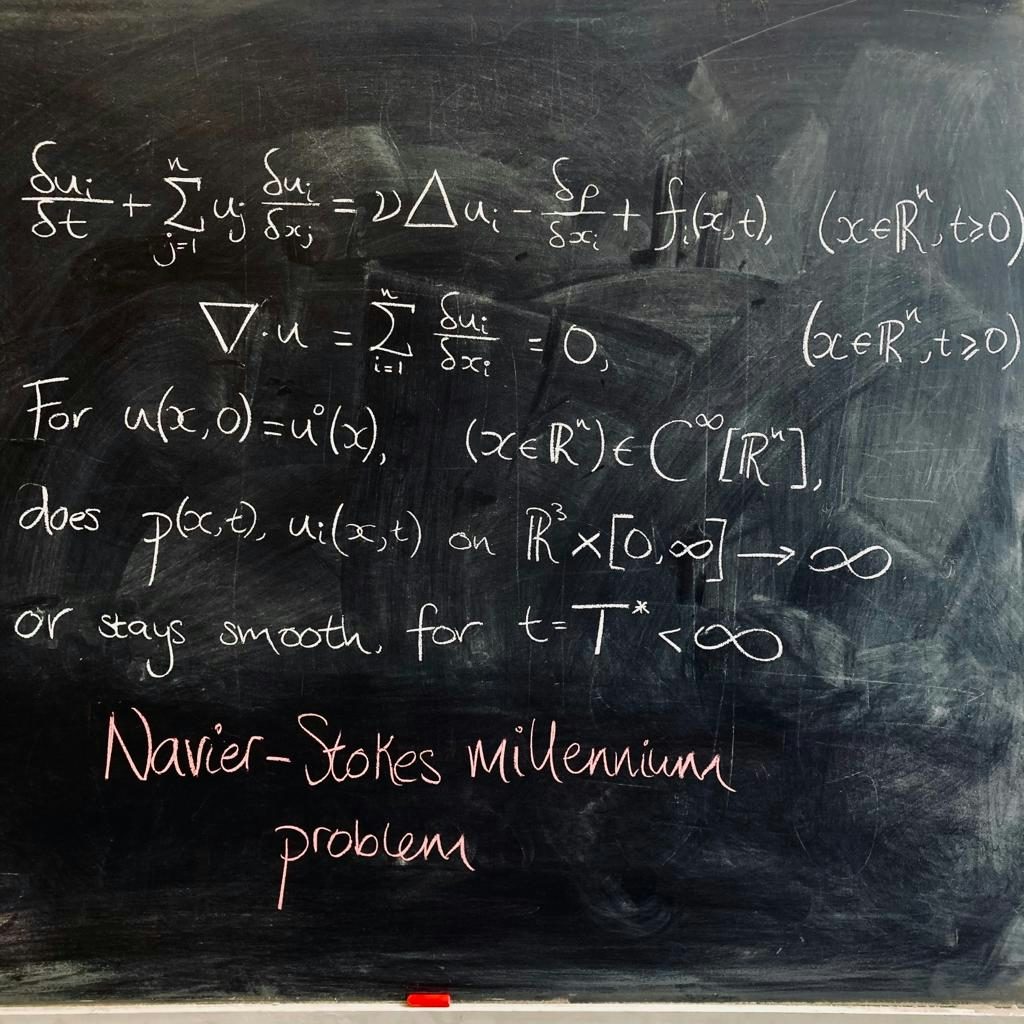 δuᵢ/δt + Σⁿⱼ₌₁ uⱼ δuᵢ/δxⱼ = νΔuᵢ - δp/δxᵢ + fᵢ(x,t), (x∈ℝⁿ, t≥0)
∇·u = Σⁿᵢ₌₁ δuᵢ/δxᵢ = 0, (x∈ℝⁿ, t≥0)
For u(x,0)=u°(x), (x∈ℝⁿ)∈C^∞[ℝⁿ],
does p(x,t), uᵢ(x,t) on ℝ³×[0,∞]→∞
or stays smooth, for t=T*<∞
Navier-Stokes millennium
problem